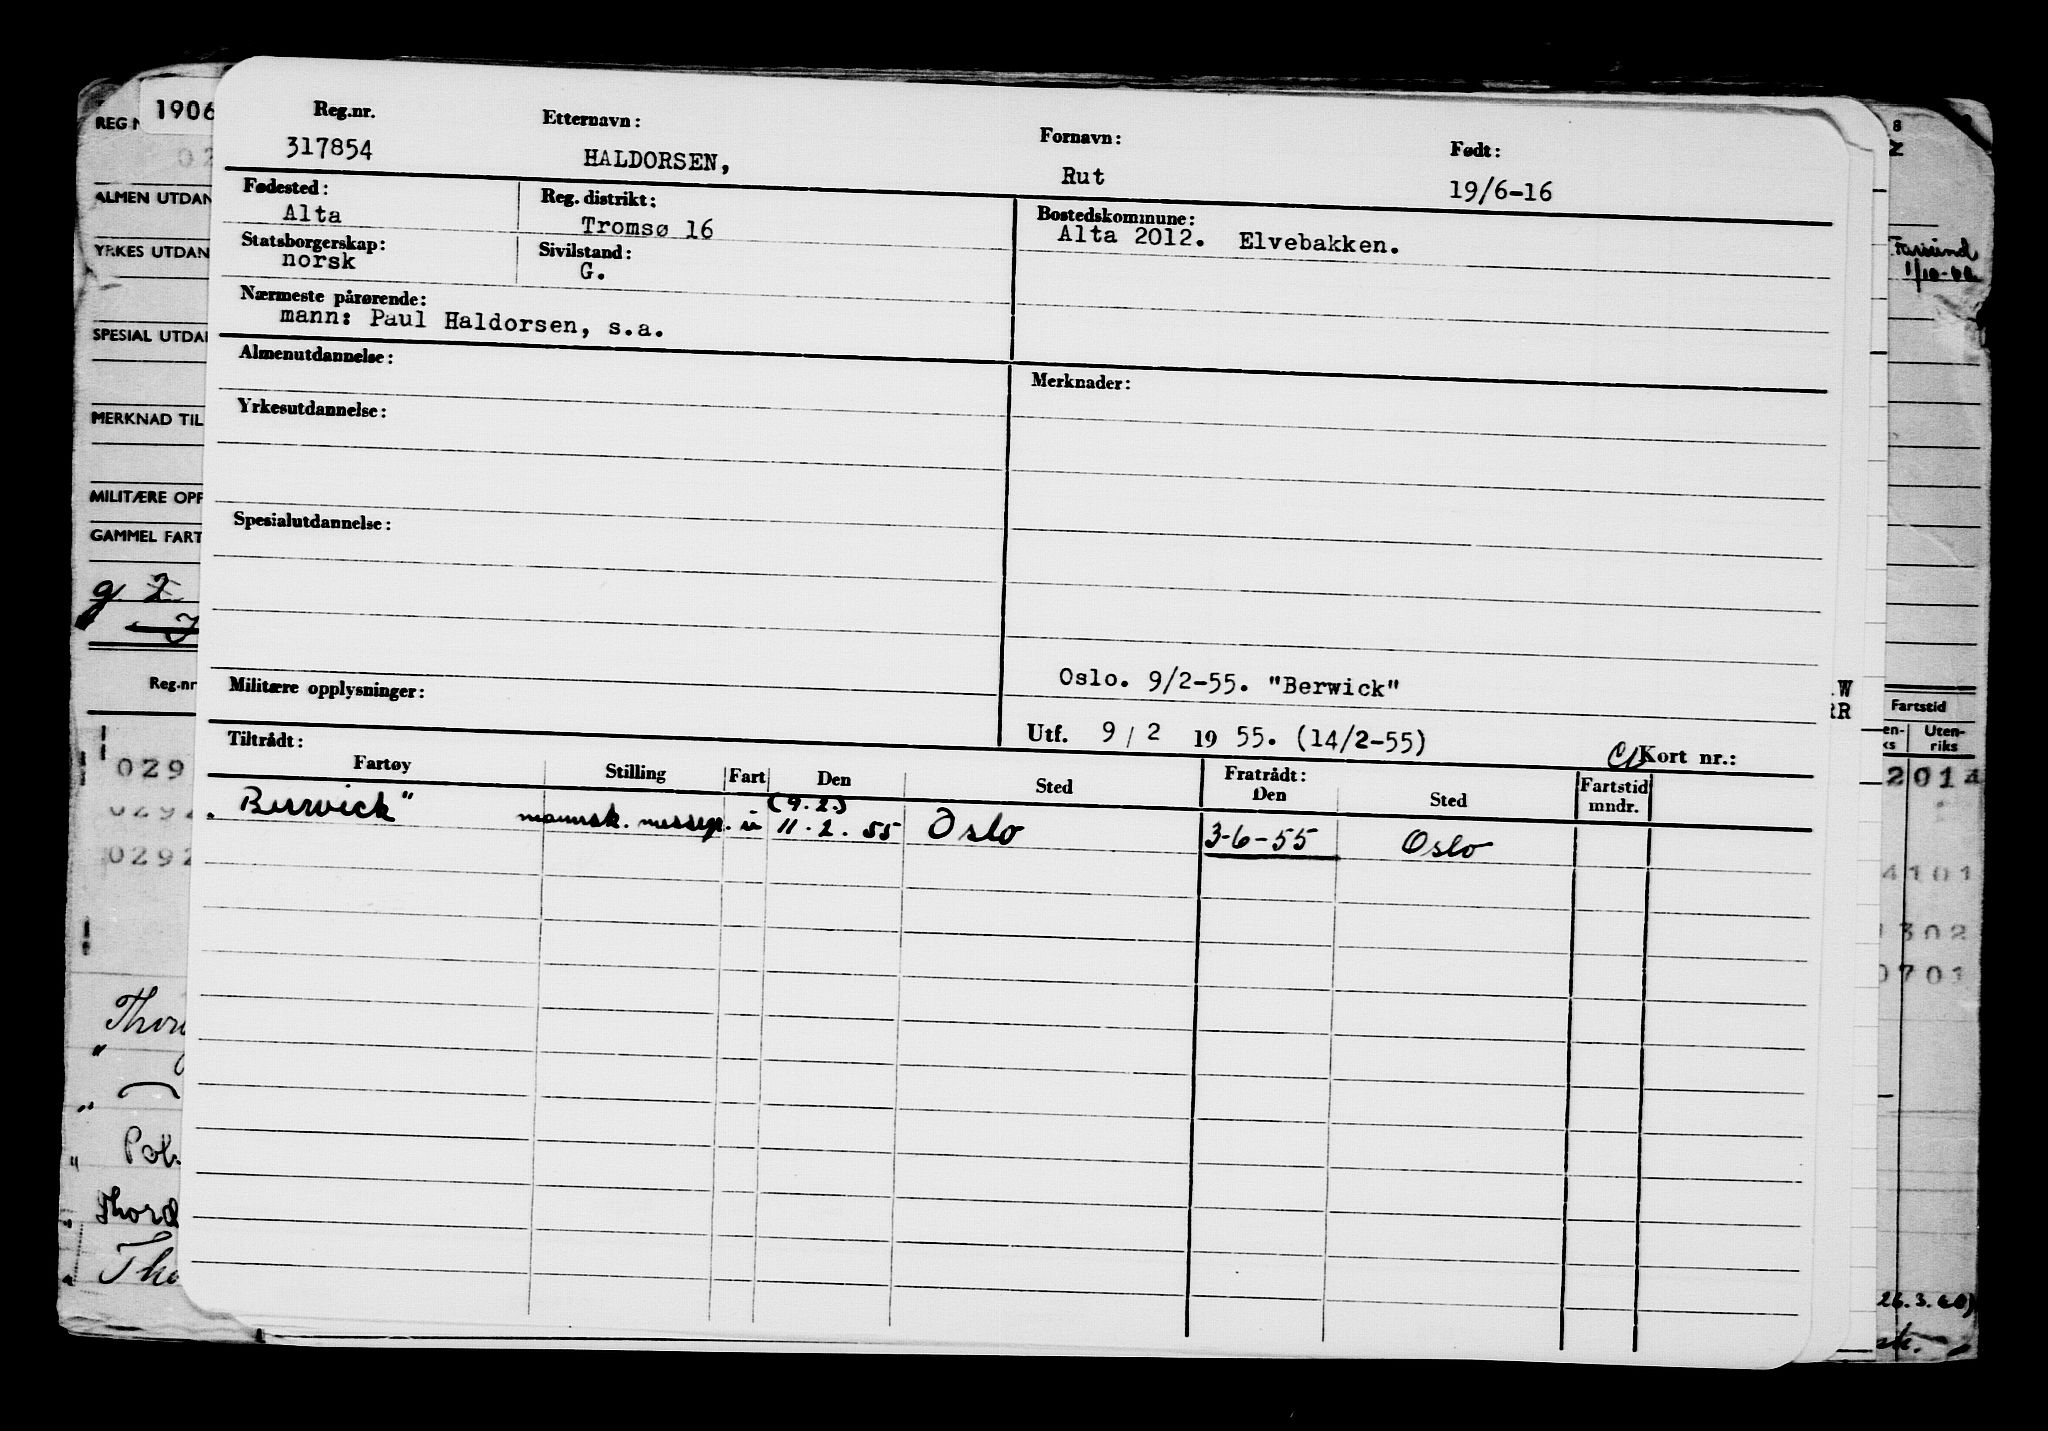 1906
REG N
ALMEN UTDAN
YRKES UTDAN
SPESIAL UTDA
MERKNAD TIL
MILITÆRE OPP
GAMMEL FART
g 2
Reg.nr
029
0292
0292
Thor
Pol.
Thord
Tho
Reg.nr. Etternavn: Fornavn: Født:
317854 HALDORSEN, Rut 19/6-16
Fødested: Reg. distrikt: Bostedskommune:
Alta Tromsø 16 Alta 2012. Elvebakken.
Statsborgerskap: Sivilstand:
norsk G.
Nærmeste pårørende:
mann: Paul Haldorsen, s.a.
Almenutdannelse: Merknader:
Yrkesutdannelse:
Spesialutdannelse:
Oslo. 9/2-55. "Berwick"
Militære opplysninger:
Utf. 9 / 2 19 55. (14/2-55)
Tiltrådt: Kort nr.:
Fartøy Stilling Fart Den Sted Fratrådt: Den Sted Fartstid mndr.
(9.2.)
"Berwick" mannsk. messep. u 11.2.55 Oslo 3-6-55 Oslo
8
2
1/10-66
W
RR
Fartstid
en-ks Uten-riks
2014
4101
1302
0701
26.3.60)